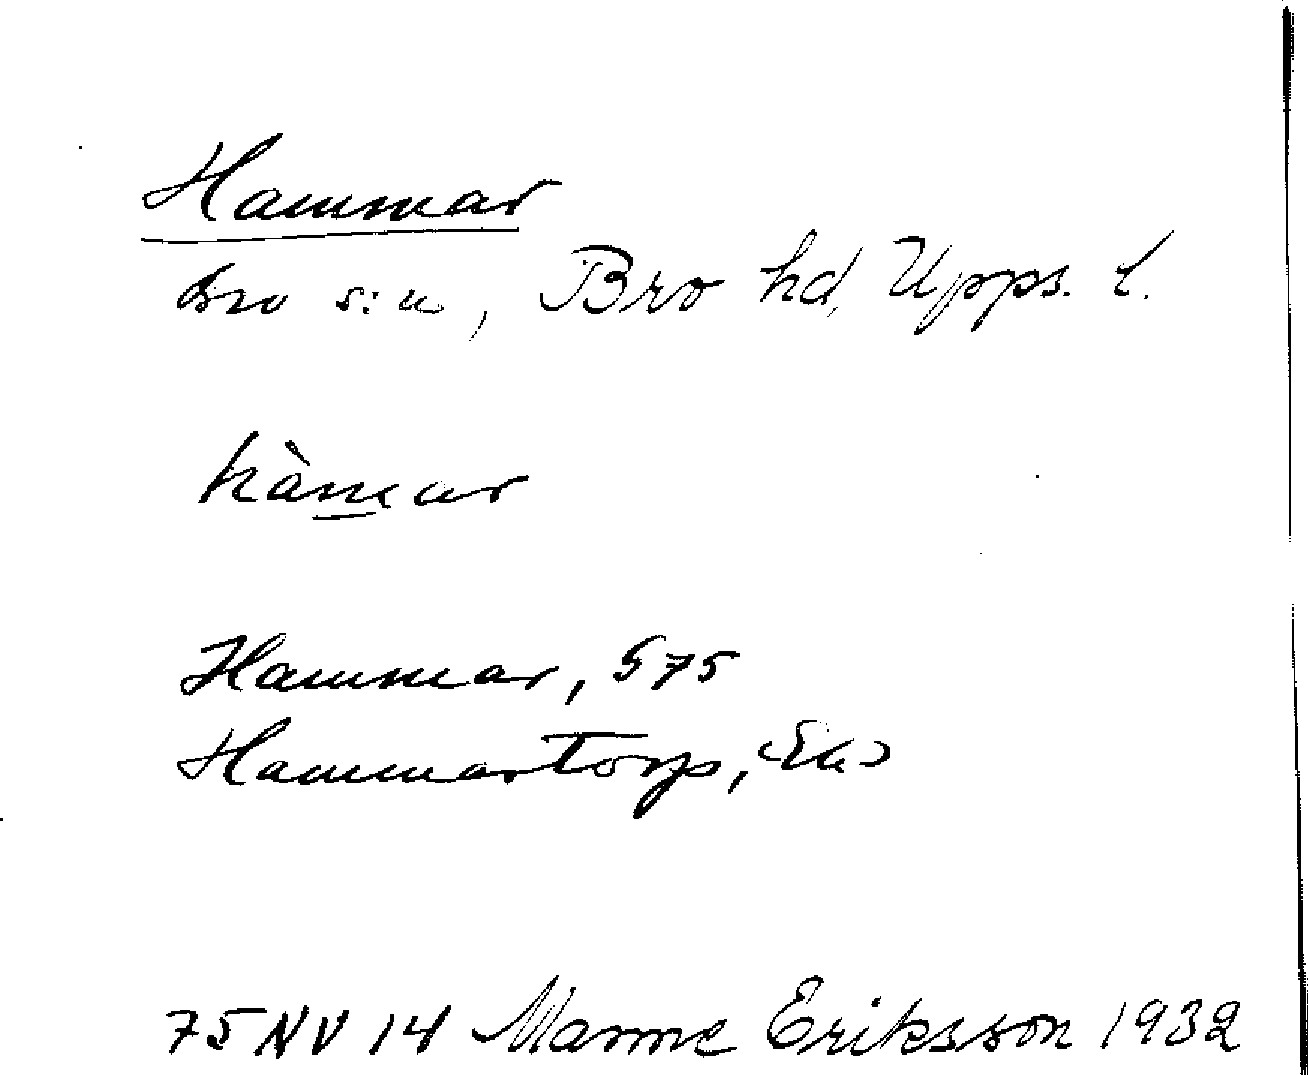 Hammar
Bro s:n, Bro hd, Upps. l.
hàmar
Hammar, G75
Hammartorp, Ek
75 NV 14 Manne Eriksson 1932